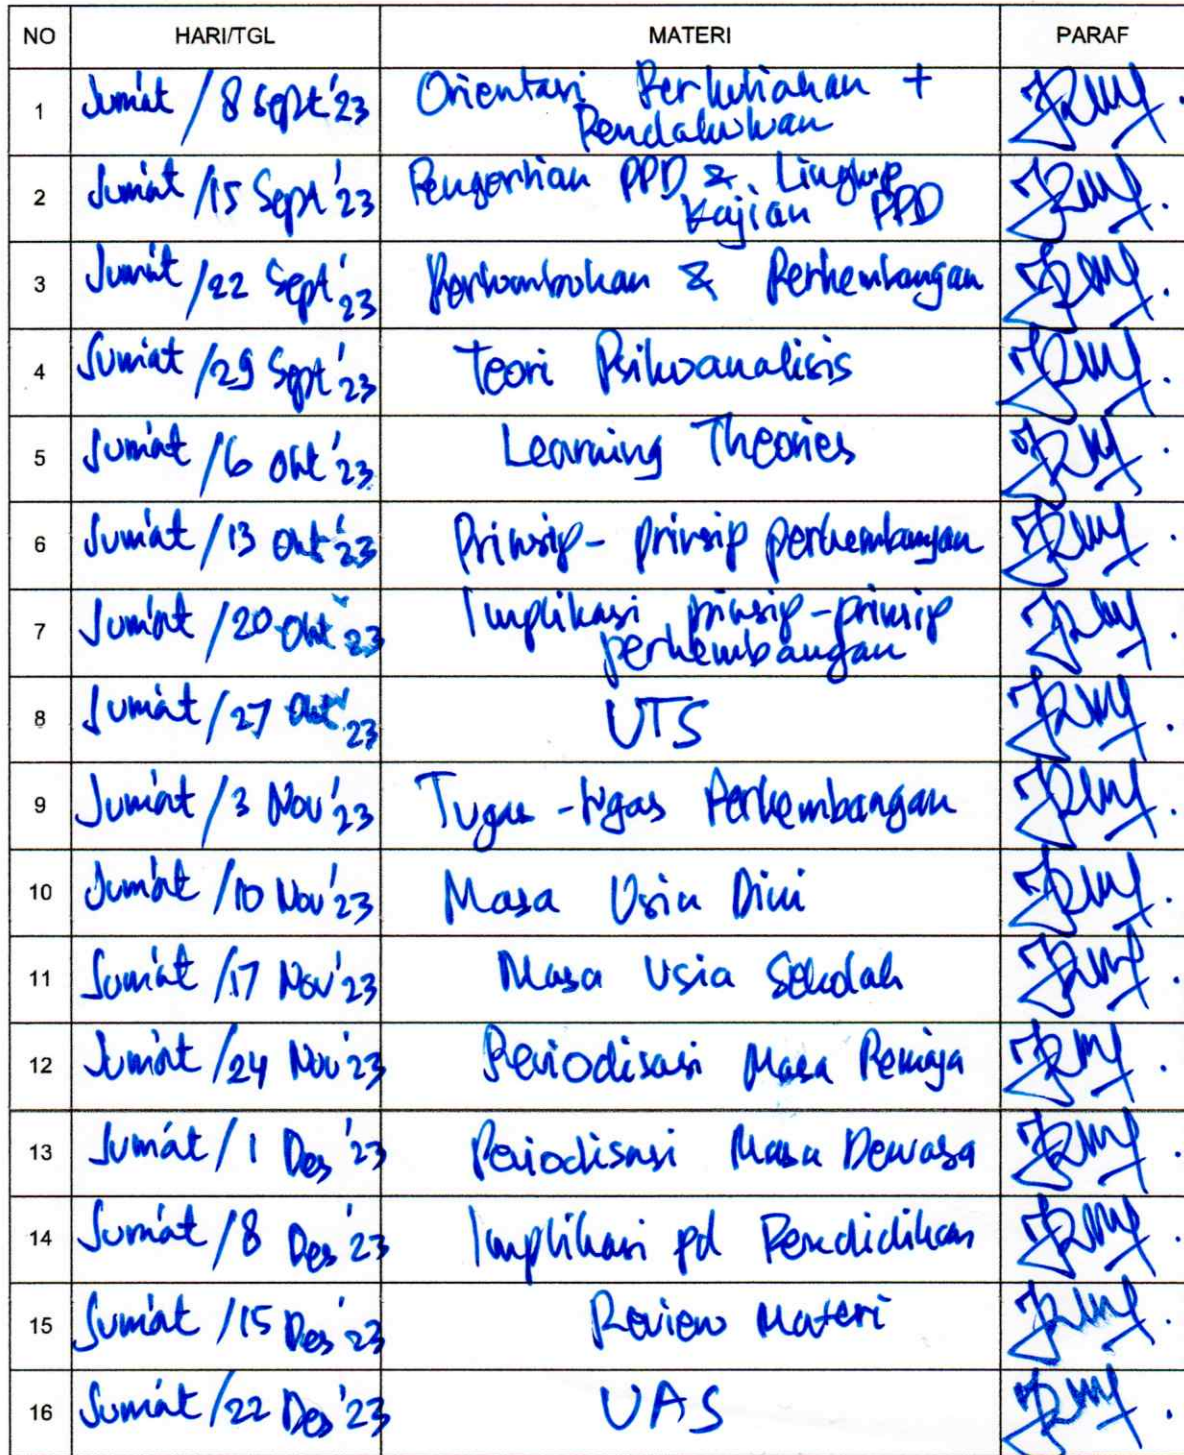 NO HARI/TGL MATERI PARAF
1 Jumát / 8 Sept '23 Orientasi Perkuliahan +
Pendahuluan
2 Jumát / 15 Sept '23 Pengertian PPD & Lingkup
Kajian PPD
3 Jumát / 22 Sept '23 Pertumbuhan & Perkembangan
4 Jumát / 29 Sept '23 Teori Psikoanalisis
5 Jumát / 6 Okt '23 Learning Theories
6 Jumát / 13 Okt '23 Prinsip - prinsip perkembangan
7 Jumát / 20 Okt '23 Implikasi prinsip - prinsip
perkembangan
8 Jumát / 27 Okt '23 UTS
9 Jumát / 3 Nov '23 Tugas - tugas Perkembangan
10 Jumát / 10 Nov '23 Masa Usia Dini
11 Jumát / 17 Nov '23 Masa Usia Sekolah
12 Jumát / 24 Nov '23 Periodisasi Masa Remaja
13 Jumát / 1 Des '23 Periodisasi Masa Dewasa
14 Jumát / 8 Des '23 Implikasi pd Pendidikan
15 Jumát / 15 Des '23 Review Materi
16 Jumát / 22 Des '23 UAS